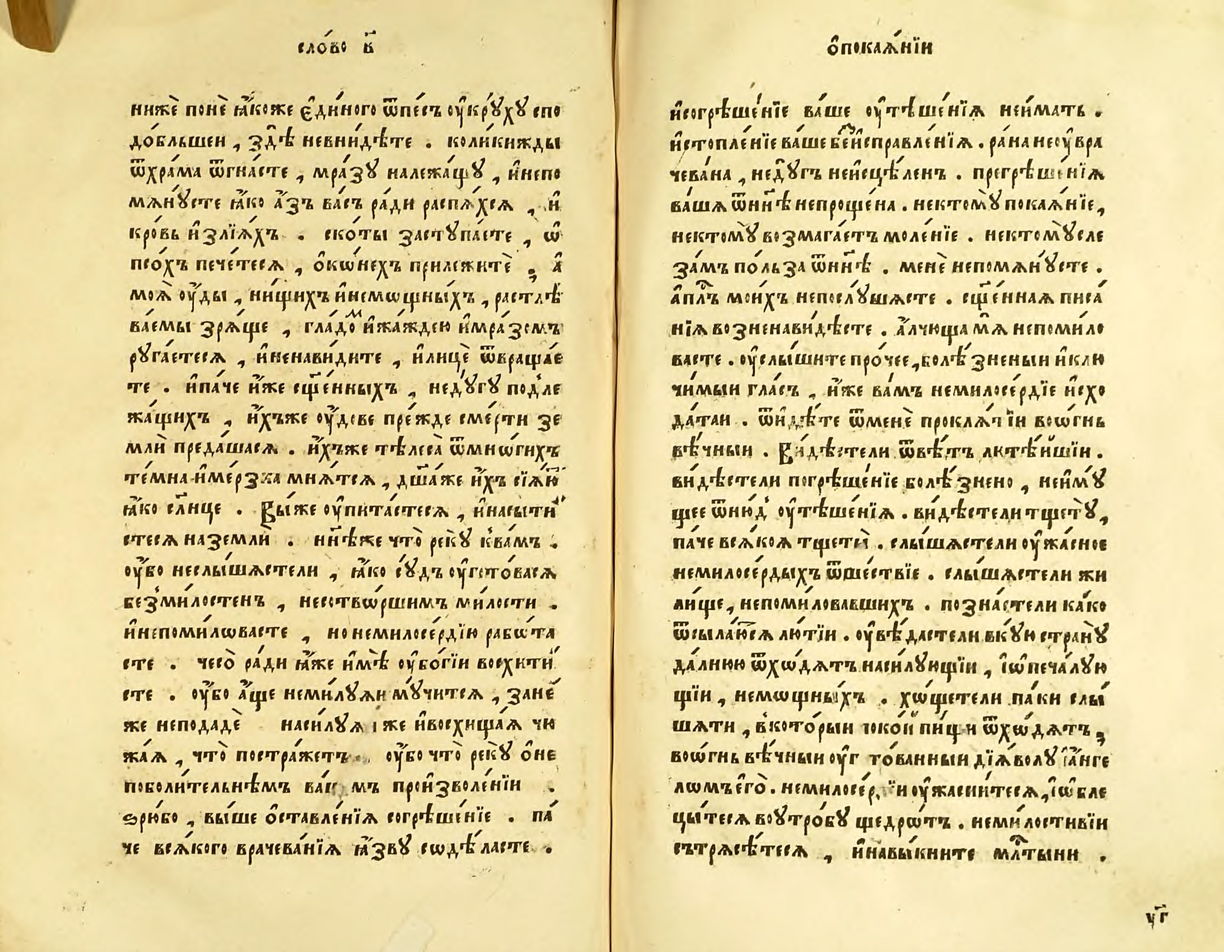 сло́во в҃
нижѐ понѐ ꙗ҆́коже є҆ди́ного ѿпе́съ оу҆кру́хꙋ спо
до́бльшеи , зд̾ѣ̀ невни́дѣте . коли́кижды
ѿхра́ма ѿгна́сте , мра́зꙋ належа́щꙋ , и҆непо
мѧнꙋ́сте ꙗ҆́ко а҆́зъ ва́съ ра́ди распѧ́хсѧ , и҆
кро́вь и҆злїѧ́хъ . ско́ты застꙋпа́ете , ѡ҆
псо́хъ пече́тесѧ , о҆ко́нехъ прилежитѐ , а҆
моѧ̀ оу҆́ды , ни́щихъ и҆немо́щныхъ , растлѣ
ва́емы зрѧ́ще , гла́дом и҆жа́ждею и҆мра́зомъ
рꙋга́етесѧ , и҆ненави́дите , и҆лицѐ ѿвраща́е
те . и҆па́че и҆́же сщ҃е́нныхъ , недꙋ́гꙋ под̾ле
жа́щихъ , и҆́хъже оу҆́дове пре́жде сме́рти зе
млѝ преда́шасѧ . и҆́хъже тѣлеса̀ ѿмно́гихъ
те́мна и҆ме́рзка мнѧ́тсѧ , дш҃а́же и҆́хъ сїѧ́ю
ꙗ҆́ко сл҃нце . Вы́же оу҆пита́стесѧ , и҆насы́ти
стесѧ наземлѝ . нн҃ѣже что̀ рекꙋ̀ к̾ва́мъ .
оу҆́бо неслы́шѧстели , ꙗ҆́ко сꙋ́дъ оу҆гото́васѧ
без̾ми́лостенъ , несотво́ршимъ ми́лости .
и҆непоми́ловасте , но немилосе́рдїю рабо́та
сте . чесо̀ ра́ди ꙗ҆́же и҆́мѣ оу҆бо́гїи восхи́ти
сте . оу҆́бо а҆́ще неми́лꙋѧи мꙋ́читсѧ , зане́
же неподадѐ наси́лꙋѧ же и҆восхища́ѧ чю
жа́ѧ , что̀ постра́жетъ . оу҆́бо что̀ рекꙋ̀ о҆не
поболи́тельнѣмъ ва́шемъ произволе́нїи .
ѕрю́бо , вы́ше о҆ставле́нїѧ согрѣше́нїе . па́
че всѧ́кого врачева́нїѧ ꙗ҆́звꙋ содѣ́ласте .
ѡ҆покаѧ́нїи
и҆согрѣше́нїе ва́ше оу҆тѣше́нїѧ неи҆́мать .
и҆стопле́нїе ва́ше беи҆справле́нїѧ . ра́на неоу҆вра
чева́на , недꙋ́гъ неи҆сцѣ́ленъ . прегрѣше́нїѧ
ва́шѧ ѿнн҃ѣ непроще́на . нектомꙋ̀ покаѧ́нїе ,
нектомꙋ̀ возмага́етъ моле́нїе . нектомꙋ̀ сле
за́мъ по́льза ѿнн҃ѣ . менѐ непомѧнꙋ́сте .
а҆пл҃ъ мои́хъ непослꙋ́шѧсте . сщ҃е́ннаѧ писа́
нїѧ возненави́дѣсте . а҆́лчюща мѧ̀ непоми́ло
васте . оу҆слы́шите про́чее , болѣ́зненыи и҆клю
чи́мыи гла́съ , и҆́же ва́мъ немилосе́рдїе и҆схо
да́таи . ѿи҆дѣ́те ѿменѐ проклѧ́тїи во҆о́гнь
вѣ́чныи . Ви́дѣстели ѿвѣ́тъ лютѣ́ишїи .
ви́дѣстели погрѣше́нїе болѣ́знено , неи҆мꙋ́
щее ѿню́д̾ оу҆тѣше́нїѧ . ви́дѣстели тщетꙋ̀ ,
па́че всѧ́коѧ тщеты̀ . слы́шѧстели оу҆жа́сное
немилосе́рдыхъ ѿше́ствїе . слы́шѧстели жи
ли́ще , непоми́ловавшихъ . позна́стели ка́ко
ѿсыла́ютсѧ лю́тїи . оу҆вѣ́дастели вкꙋ́ю странꙋ̀
да́льнюю ѿхо́дѧтъ наси́лꙋющїи , і҆ѡ҆печа́лꙋю
щїи , немо́щныхъ . хо́щетели па́ки слы́
шѧти , в̾кото́рыи поко́и пи́щи ѿхо́дѧтъ ,
во҆о́гнь вѣ́чныи оу҆гото́ванныи дїѧ́волꙋ і҆а҆́нге
ломъ є҆го̀ . немилосе́рдїи оу҆жасни́тесѧ , і҆ѡ҆бле
цы́тесѧ воу҆тро́бꙋ щедро́тъ . неми́лостивїи
сътрѧсѣ́тесѧ , и҆навы́кните мл҃тыни .
уг҃